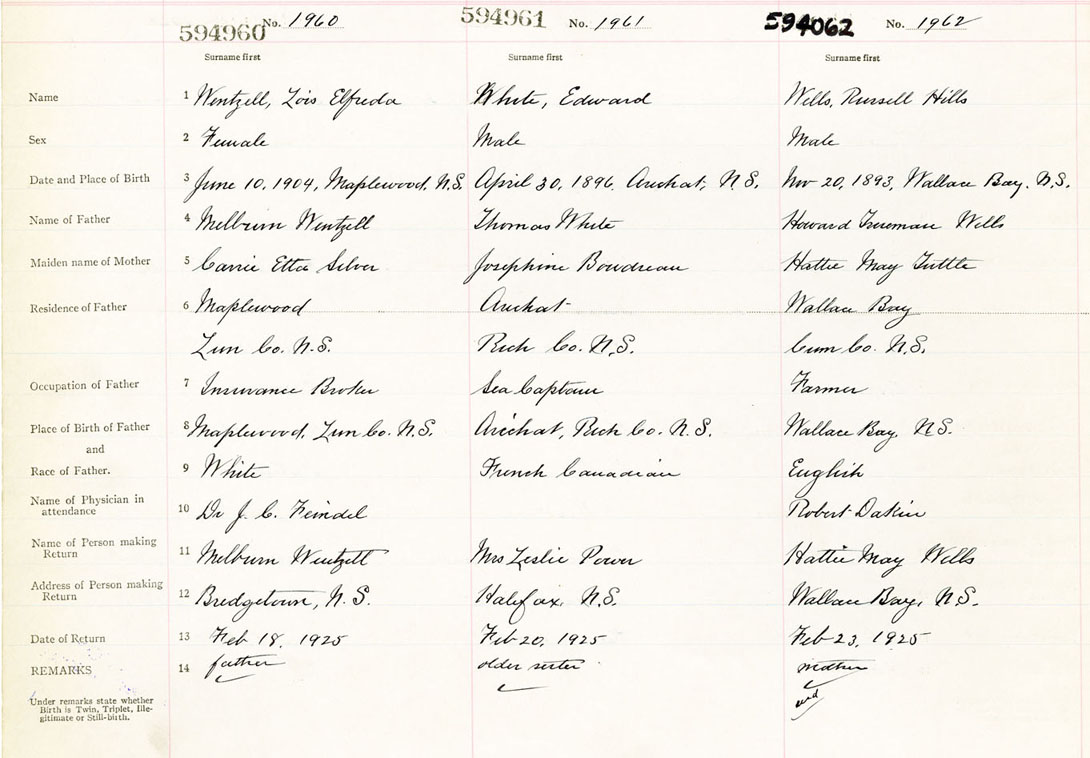 594960 No. 1960 594961 No. 1961 594062 No. 1962
Surname first Surname first Surname first
Name 1 Wentzell, Lois Elfreda White, Edward Wells, Russell Hills
Sex 2 Female Male Male
Date and Place of Birth 3 June 10, 1904, Maplewood, N.S. April 30, 1896, Arichat, N.S. Nov 20, 1893, Wallace Bay, N.S.
Name of Father 4 Melburn Wentzell Thomas White Howard Freeman Wells
Maiden name of Mother 5 Carrie Etta Silver Josephine Boudreau Hattie May Tuttle
Residence of Father 6 Maplewood Arichat Wallace Bay
Lun Co. N.S. Rich Co. N.S. Cum Co. N.S.
Occupation of Father 7 Insurance Broker Sea Captain Farmer
Place of Birth of Father 8 Maplewood, Lun Co. N.S. Arichat, Rich Co. N.S. Wallace Bay, N.S.
and
Race of Father. 9 White French Canadian English
Name of Physician in
attendance 10 Dr J. C. Feindel Robert Dakin
Name of Person making
Return 11 Melburn Wentzell Mrs Leslie Power Hattie May Wells
Address of Person making
Return 12 Bridgetown, N.S. Halifax, N.S. Wallace Bay, N.S.
Date of Return 13 Feb 18, 1925 Feb 20, 1925 Feb 23, 1925
REMARKS 14 father older sister mother
Under remarks state whether
Birth is Twin, Triplet, Ille-
gitimate or Still-birth.